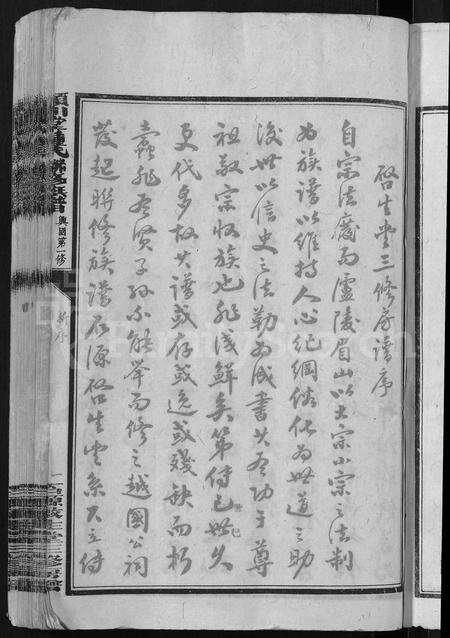 啓生堂三修房譜序
自宗法廢而廬陵眉山以大宗小宗之法制
為族譜以維持人心紀綱俗化為世道之助
後世以信史之法勒為成書其有功于尊
祖敬宗收族也非淺鮮矣第傳已世久
更代多故其譜或存或逸或殘缺而朽
蠹非有賢子孫不能舉而修之越國公祠
發起聯修族譜石源啓生堂系天立傳
興國第一修
新序